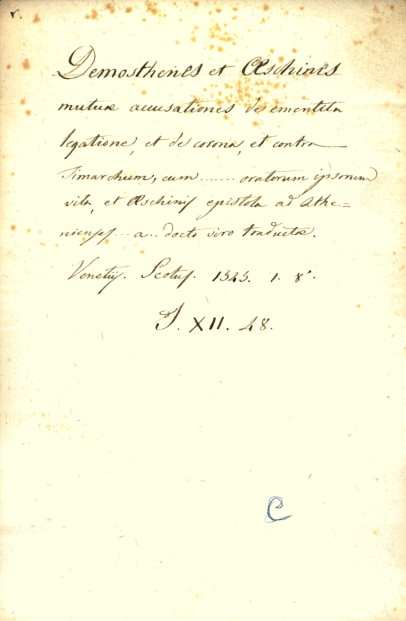 r.
Demosthenes et Œschines
mutuæ accusationes de ementita
legatione, et de corona, et contra
Timarchum, cum ....... oratorum ipsorum
vita, et Œschinis epistola ad Athe=
nienses ... a... docto viro traductæ.
Venetijs. Scotus. 1545. 1. 8°.
J. XII. 48.
C